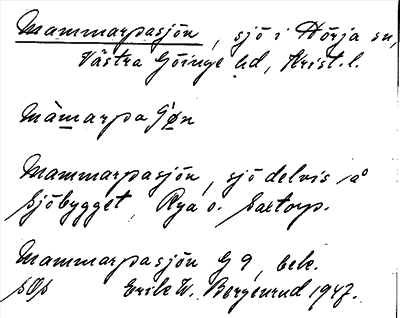 Mammarpasjön, sjö i Hörja sn,
Västra Göinge hd, Krist. l.
Màmarpa
Mammarpasjön, sjö delvis på
Sjöbygget, Rya o.
Mammarpasjön G 9, bek.
Erik W. 1947.